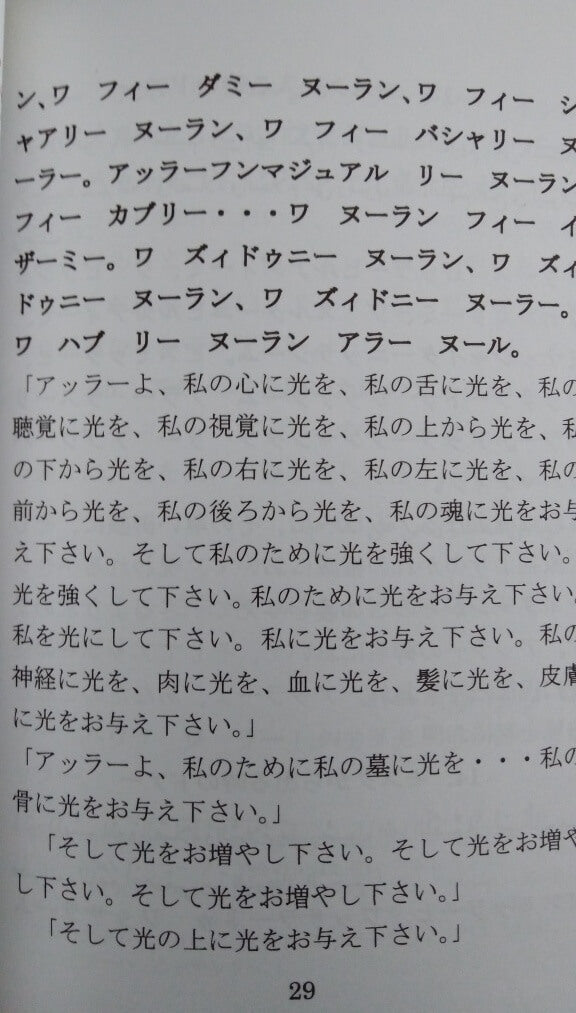 ン、ワ　フィー　ダミー　ヌーラン、ワ　フィー　シ
ャアリー　ヌーラン、ワ　フィー　バシャリー　ヌ
ーラー。アッラーフンマジュアル　リー　ヌーラン
フィー　カブリー・・・ワ　ヌーラン　フィー　イ
ザーミー。ワ　ズィドゥニー　ヌーラン、ワ　ズィ
ドゥニー　ヌーラン、ワ　ズィドニー　ヌーラー。
ワ　ハブ　リー　ヌーラン　アラー　ヌール。
「アッラーよ、私の心に光を、私の舌に光を、私の
聴覚に光を、私の視覚に光を、私の上から光を、私
の下から光を、私の右に光を、私の左に光を、私の
前から光を、私の後ろから光を、私の魂に光をお与
え下さい。そして私のために光を強くして下さい。
光を強くして下さい。私のために光をお与え下さい。
私を光にして下さい。私に光をお与え下さい。私の
神経に光を、肉に光を、血に光を、髪に光を、皮膚
に光をお与え下さい。」
「アッラーよ、私のために私の墓に光を・・・私の
骨に光をお与え下さい。」
「そして光をお増やし下さい。そして光をお増や
し下さい。そして光をお増やし下さい。」
「そして光の上に光をお与え下さい。」
29